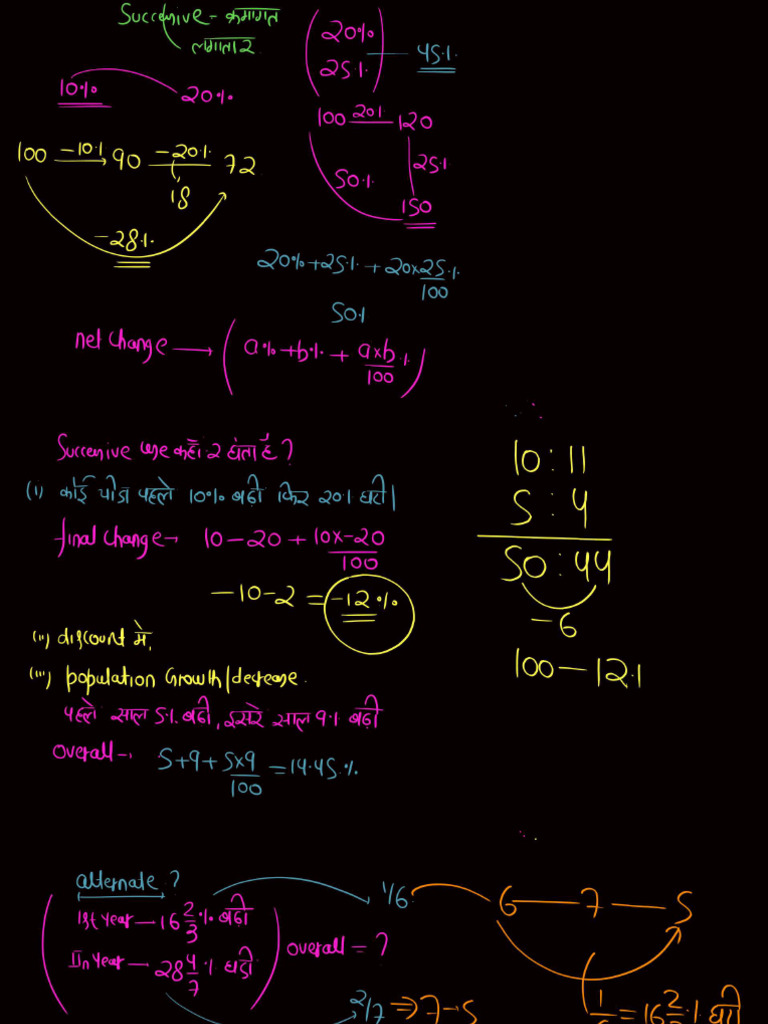 Successive - क्रमागत
लगातार
10% 20%
100 -10% 90 -20% 72
18
-28%
20%
25% 45%
100 20% 120
25%
50%
150
20% + 25% + 20×25/100 %
50%
net change → (a% + b% + a×b/100 %)
Successive use कहाँ २ होता है?
(i) कोई चीज पहले 10% बढ़ी फिर 20% घटी|
final change → 10 - 20 + 10×-20/100
-10 - 2 = -12%
(ii) discount में,
(iii) population Growth/decrease.
पहले साल 5% बढ़ी, दूसरे साल 9% बढ़ी
overall → 5 + 9 + 5×9/100 = 14.45%
10 : 11
5 : 4
50 : 44
-6
100 - 12%
alternate ?
1st year - 16 2/3 % बढ़ी
IInd year - 28 4/7 % घटी
overall = ?
1/6 6 - 7 - 5
2/7 ⇒ 7 → 5
1/6 = 16 2/3 % घटी